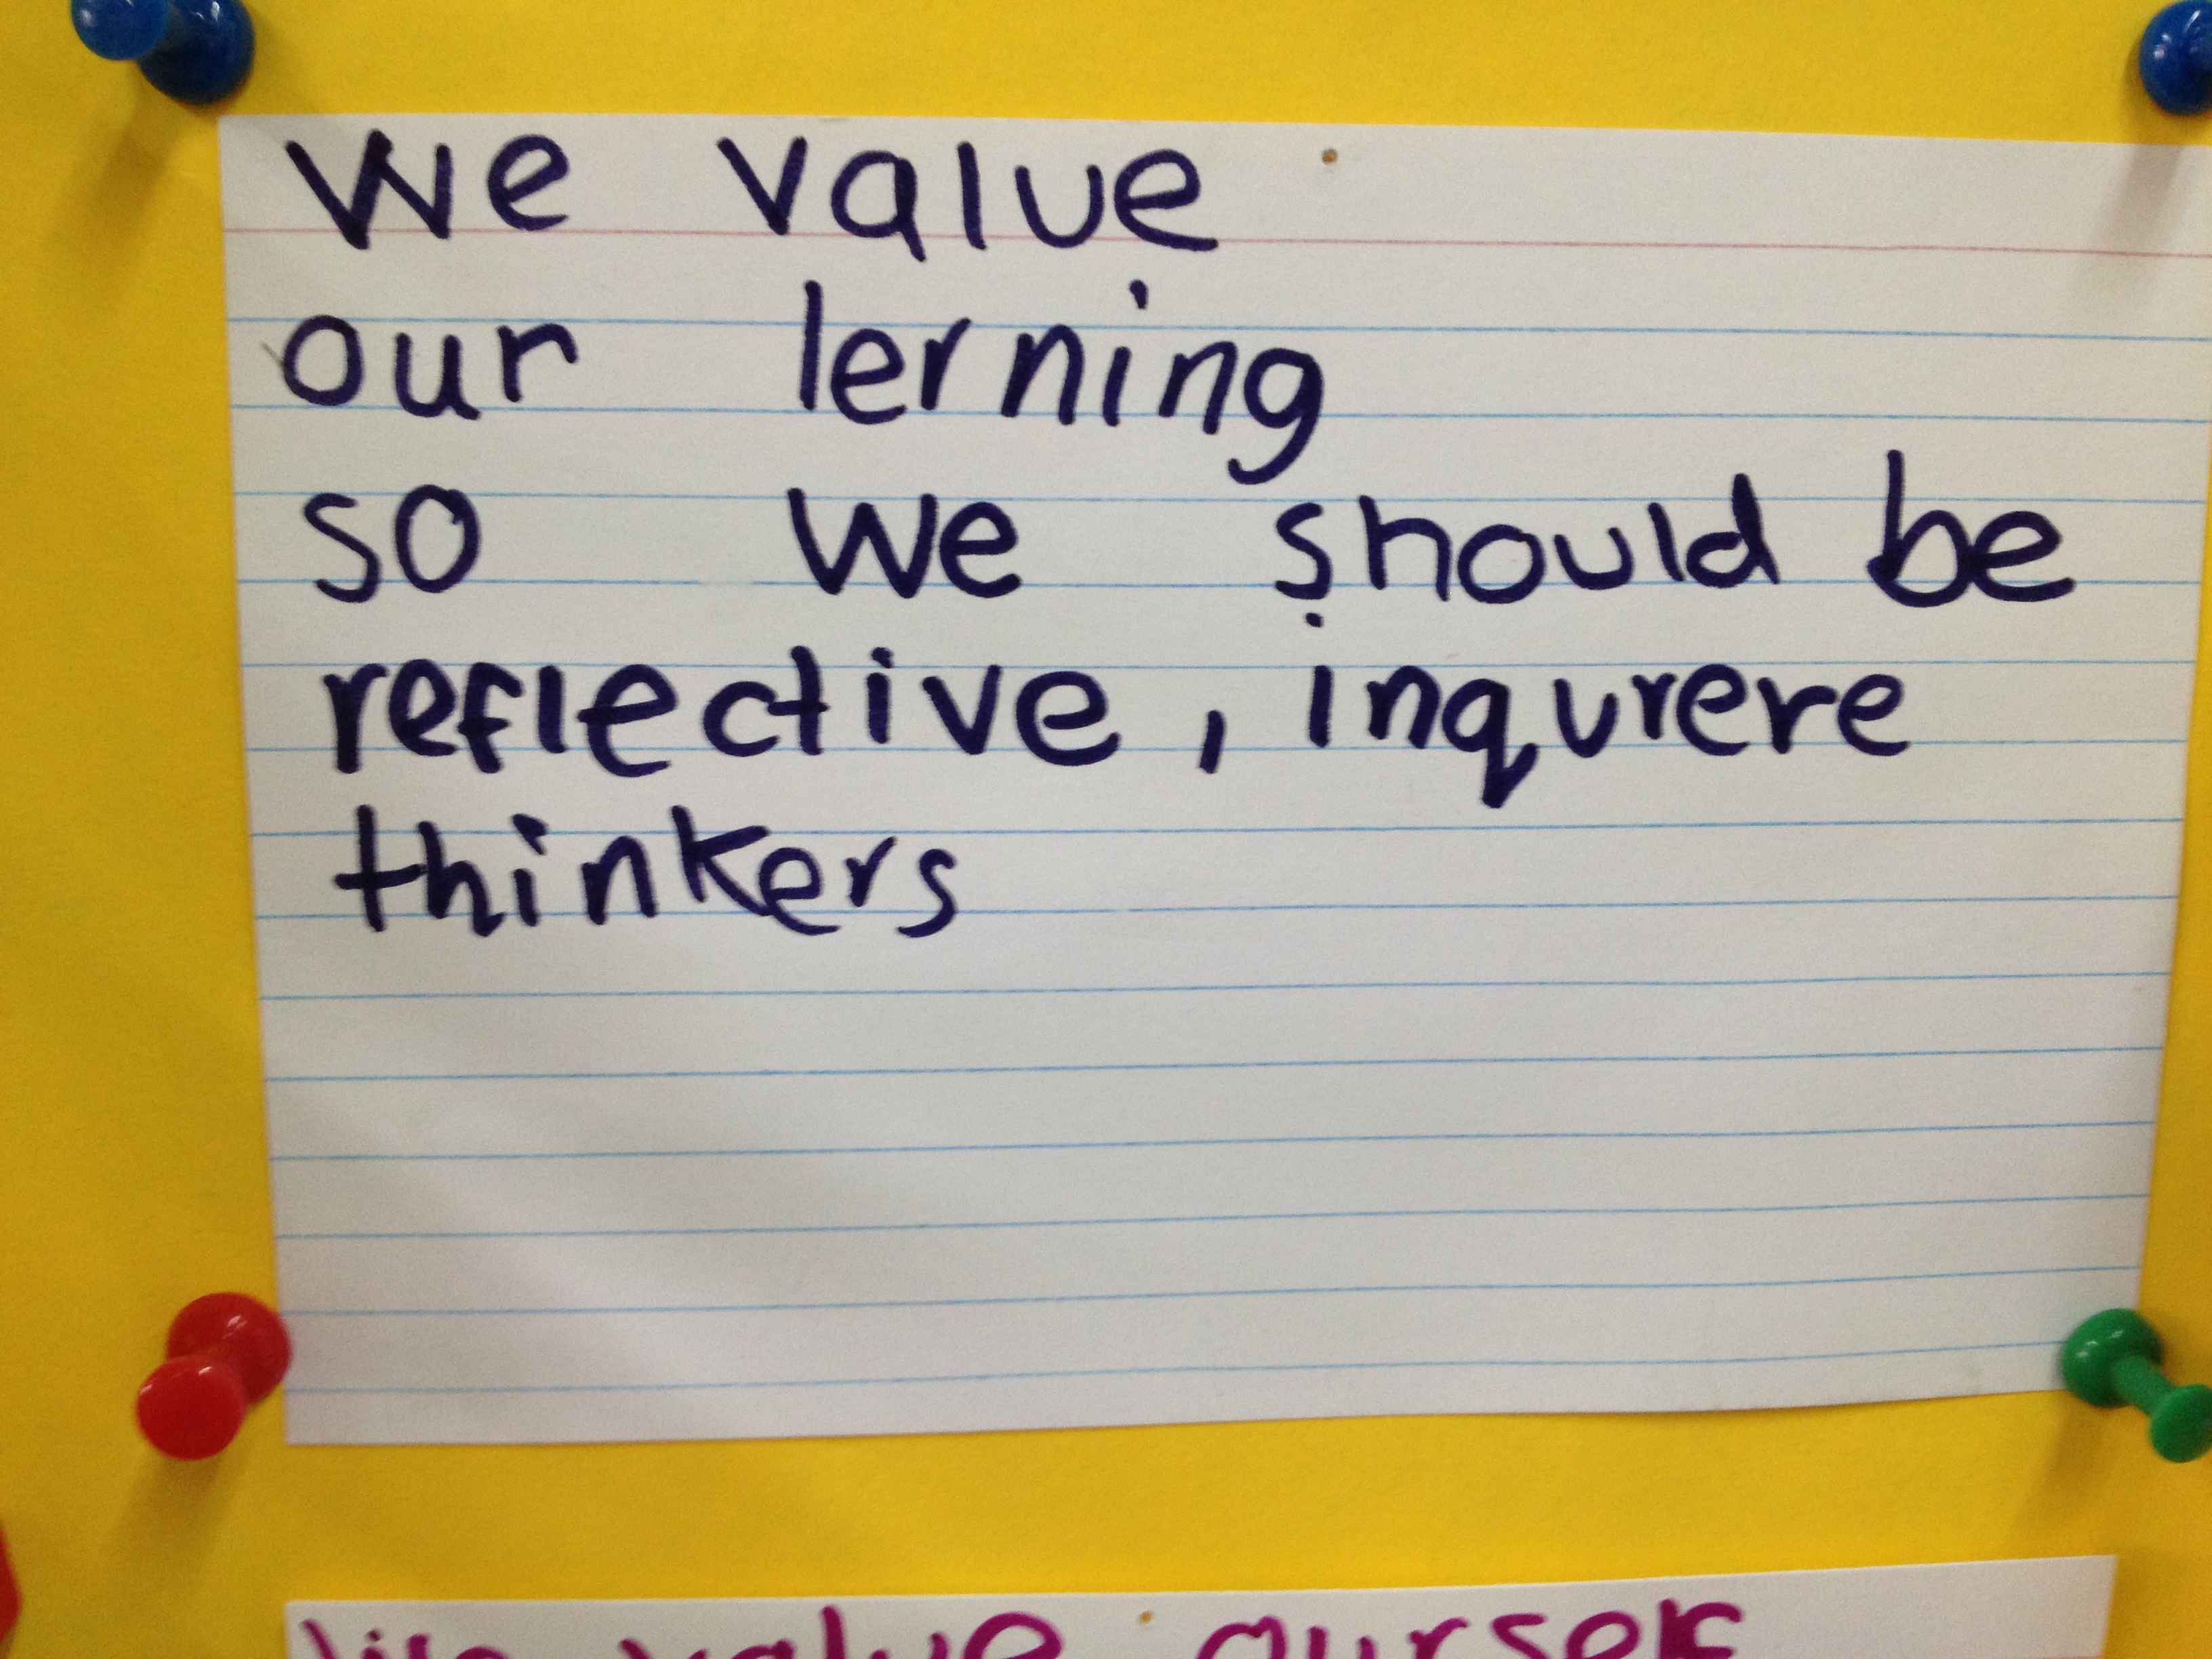 We value
our lerning
so we should be
reflective, inqurere
thinkers
We value ourself